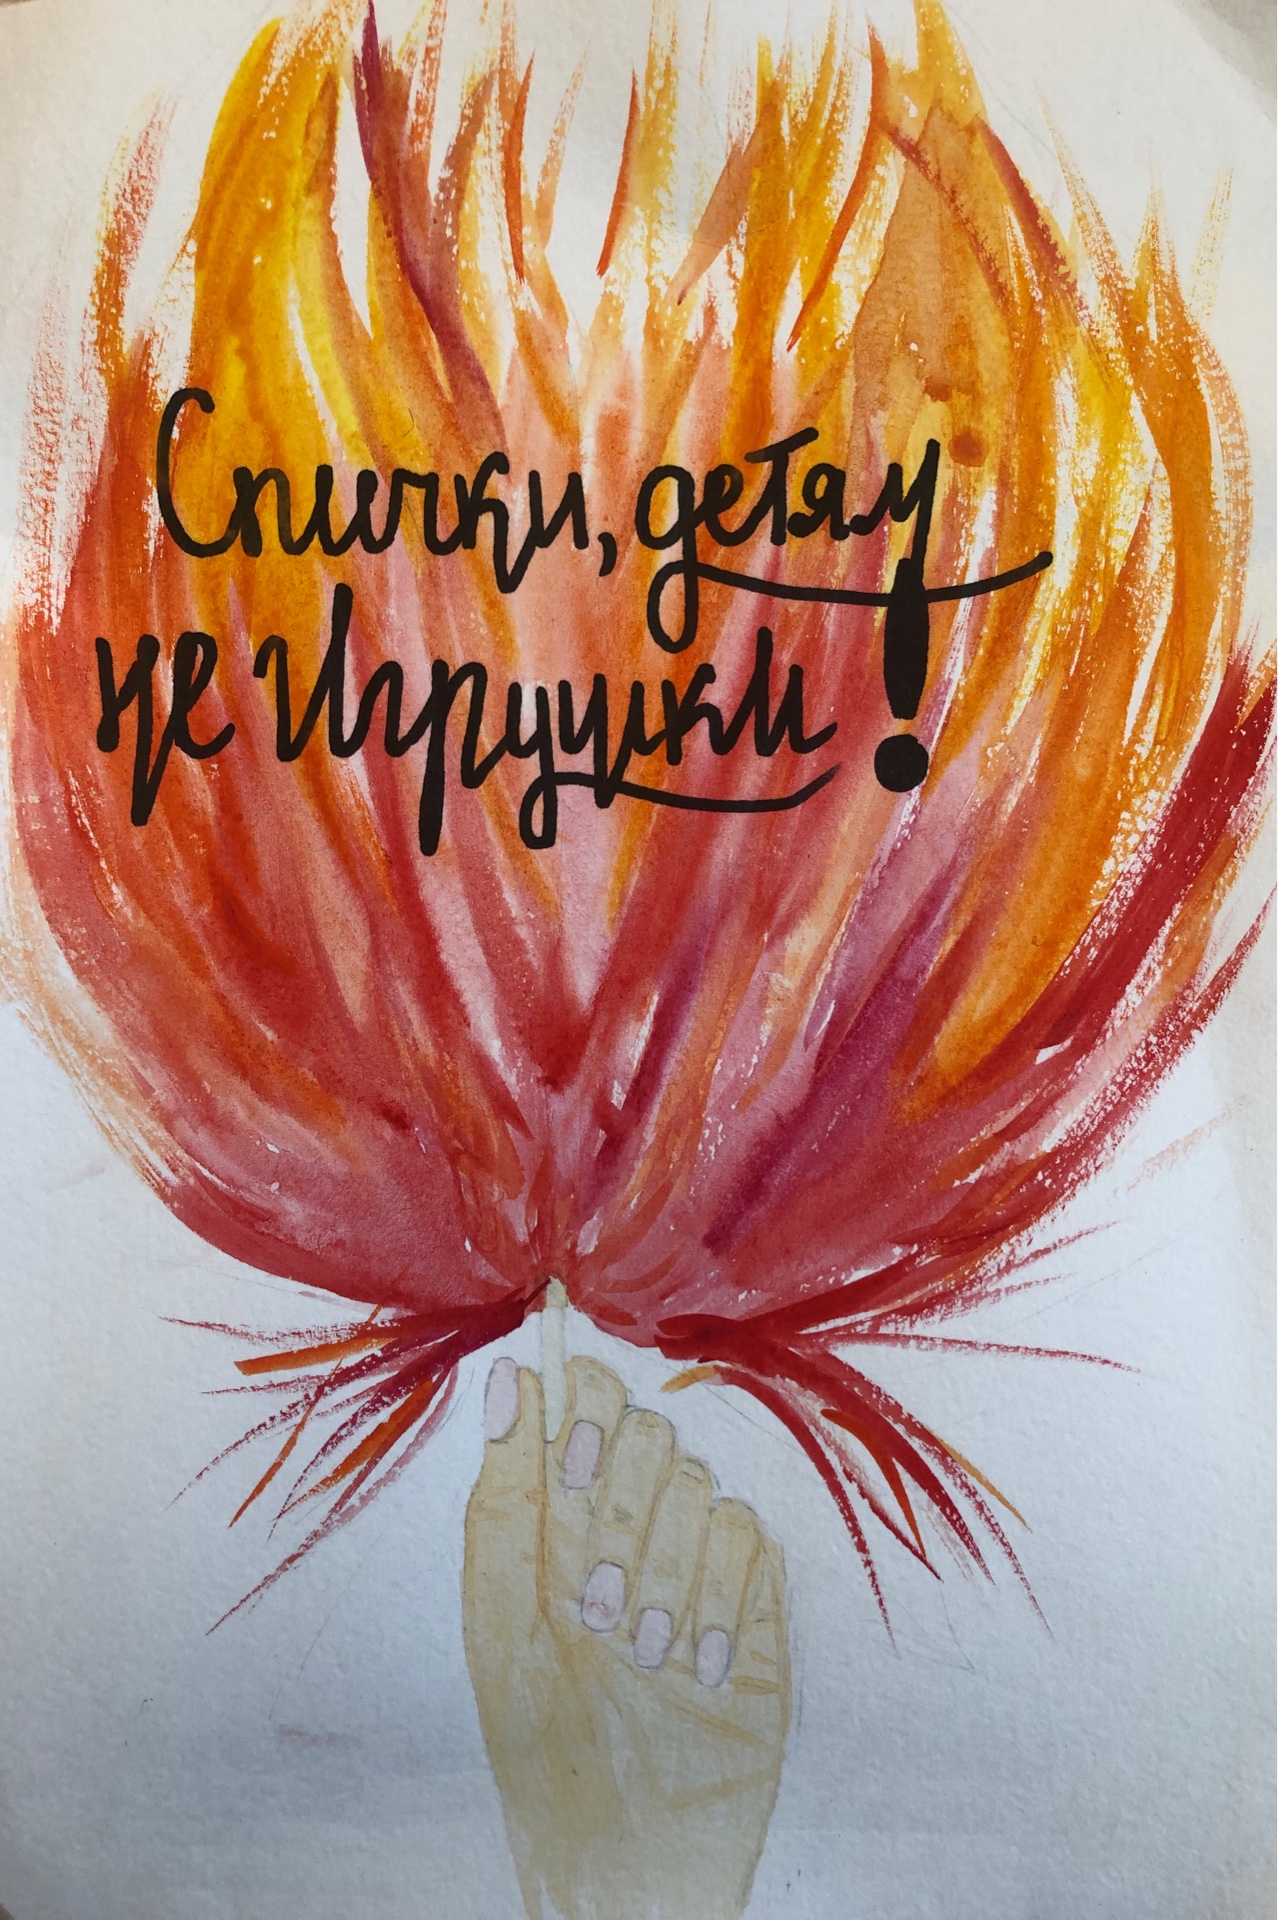 Спички, детям
не Игрушки!